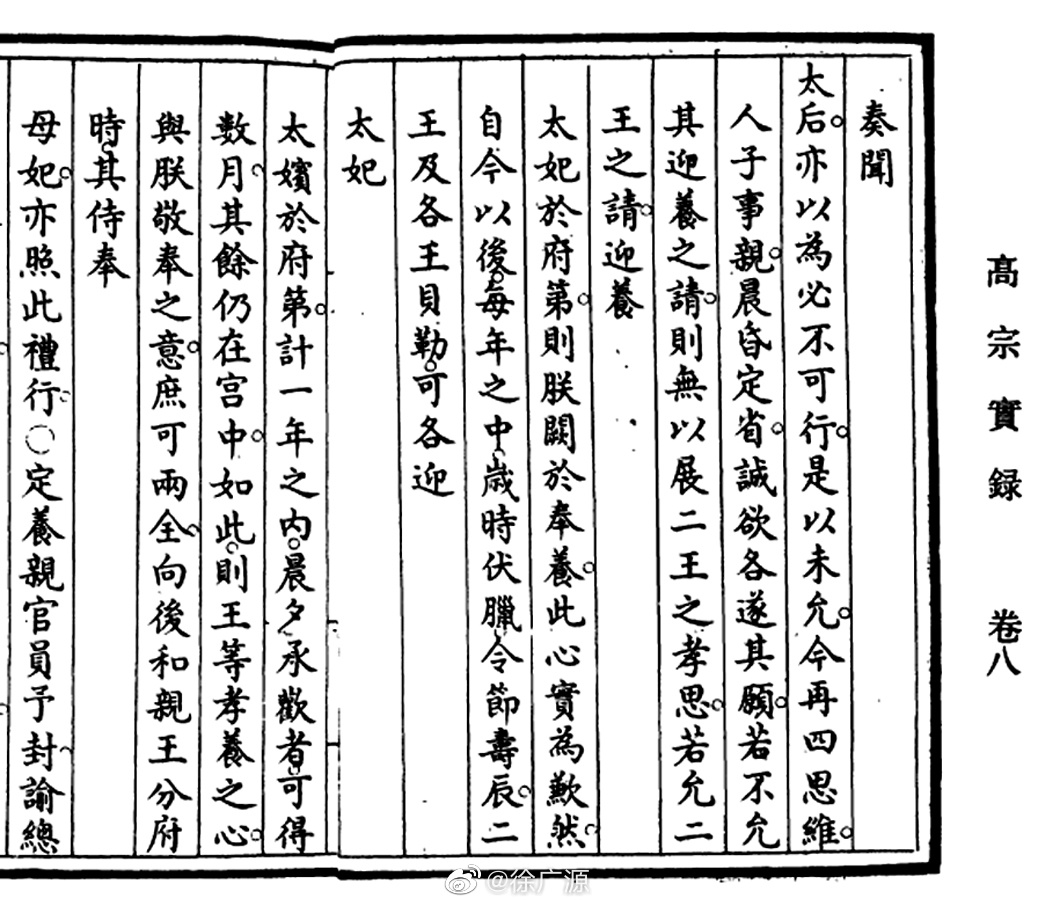 高宗實録 卷八
奏聞
太后亦以為必不可行是以未允今再四思維
人子事親晨昏定省誠欲各遂其願若不允
其迎養之請則無以展二王之孝思若允二
王之請迎養
太妃於府第則朕闕於奉養此心實為歉然
自今以後每年之中歲時伏臘令節壽辰二
王及各王貝勒可各迎
太妃
太嬪於府第計一年之內晨夕承歡者可得
數月其餘仍在宮中如此則王等孝養之心
與朕敬奉之意庶可兩全向後和親王分府
時其侍奉
母妃亦照此禮行〇定養親官員予封諭總
@徐广源